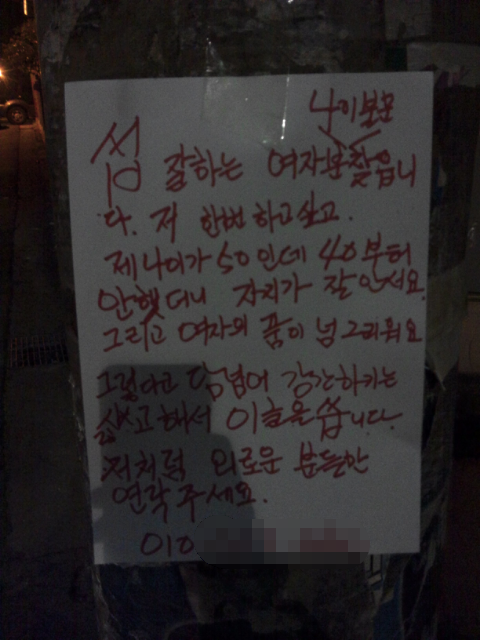 나이불문
섬 잘하는 여자분찾읍니
다. 저 한번 하고싶고.
제나이가 50인데 40부터
안했더니 자지가 잘안서요.
그리고 여자의 품이 넘그리워요
그렇다고 담넘어 강간하기는
싫고해서 이글을 씁니다.
저처럼 외로운 분들만
연락주세요.
010